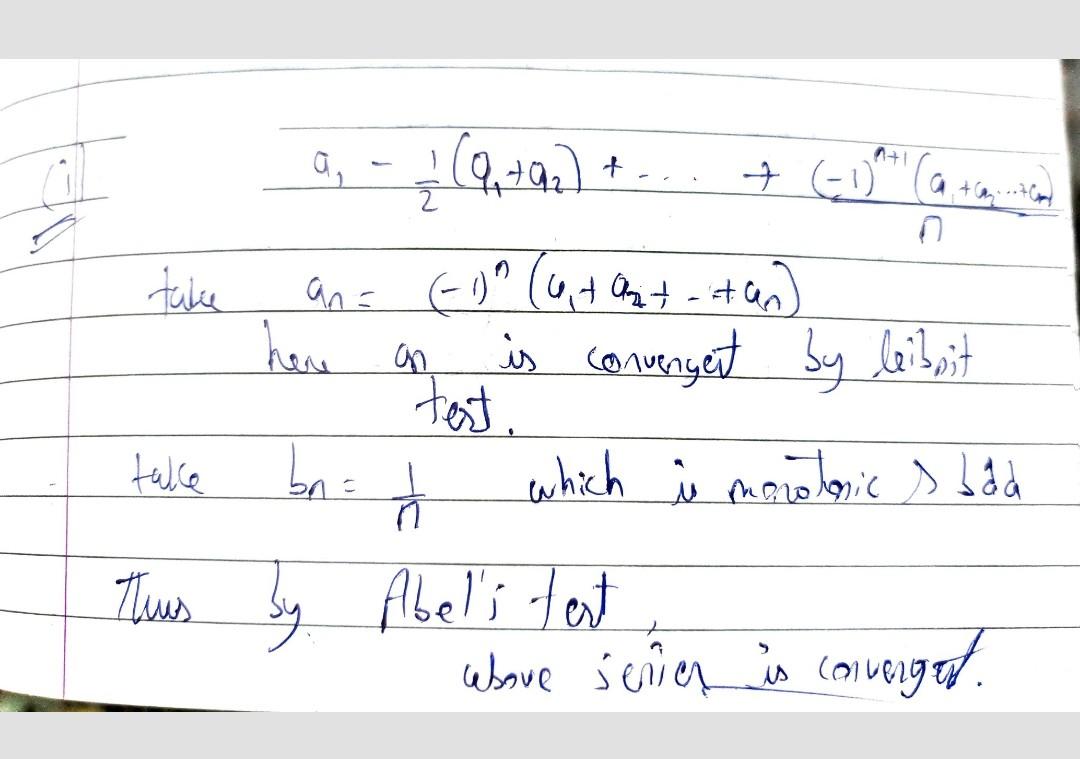 (i) a₁ - 1/2 (a₁+a₂) + .... + (-1)ⁿ⁺¹ (a₁+a₂...+aₙ)/n
take aₙ = (-1)ⁿ (a₁+a₂+-.+aₙ)
here aₙ is convergent by leibnit
test.
take bₙ = 1/n which is monotonic & bdd
Thus by Abel's test,
above series is convergent.